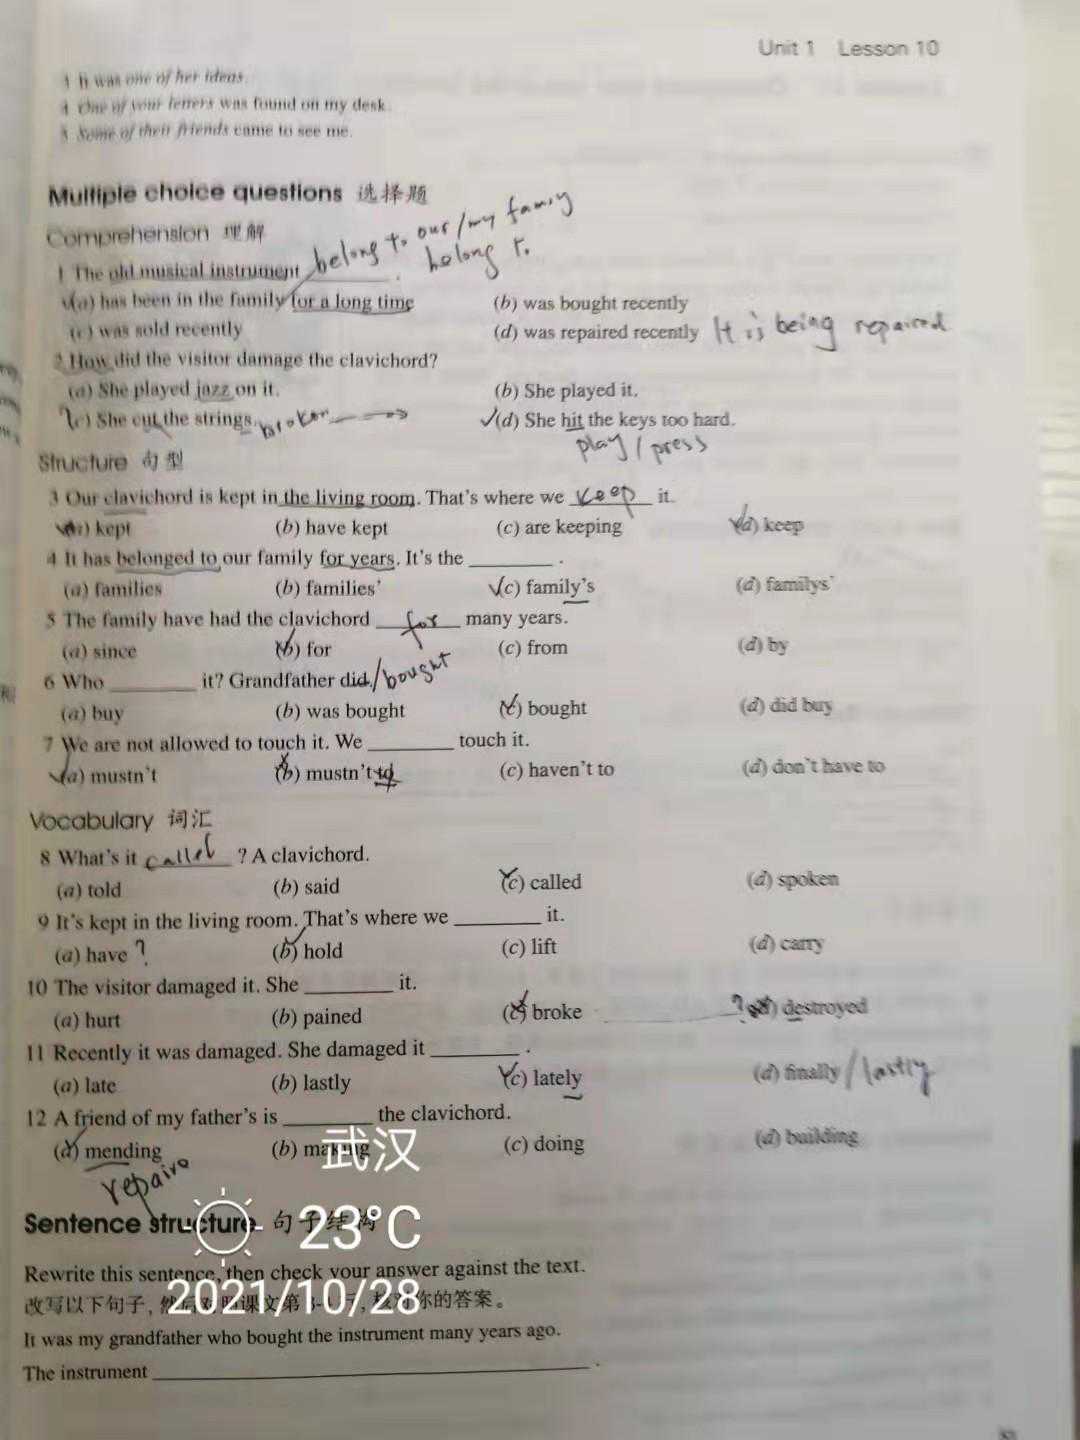 Unit 1 Lesson 10
It was one of her ideas.
4 One of your letters was found on my desk.
5 Some of their friends came to see me.
Multiple choice questions 选择题
Comprehension 理解
belong to our/my family
belong t.
1 The old musical instrument ________ .
(a) has been in the family for a long time (b) was bought recently
(c) was sold recently (d) was repaired recently It is being repaired
2 How did the visitor damage the clavichord?
(a) She played jazz on it. (b) She played it.
(c) She cut the strings. broken (d) She hit the keys too hard.
play / press
Structure 句型
3 Our clavichord is kept in the living room. That's where we keep it.
(a) kept (b) have kept (c) are keeping (d) keep
4 It has belonged to our family for years. It's the ________ .
(a) families (b) families' (c) family's (d) familys'
5 The family have had the clavichord for many years.
(a) since (b) for (c) from (d) by
6 Who ________ it? Grandfather did. /bought
(a) buy (b) was bought (c) bought (d) did buy
7 We are not allowed to touch it. We ________ touch it.
(a) mustn't (b) mustn't to (c) haven't to (d) don't have to
Vocabulary 词汇
8 What's it called ? A clavichord.
(a) told (b) said (c) called (d) spoken
9 It's kept in the living room. That's where we ________ it.
(a) have ? (b) hold (c) lift (d) carry
10 The visitor damaged it. She ________ it.
(a) hurt (b) pained (c) broke ? (d) destroyed
11 Recently it was damaged. She damaged it ________ .
(a) late (b) lastly (c) lately (d) finally / lastly
12 A friend of my father's is ________ the clavichord.
(a) mending (b) making (c) doing (d) building
武汉
Sentence structure 句子结构
23°C
Rewrite this sentence, then check your answer against the text.
改写以下句子, 然后对照课文第 3-4 行, 核对你的答案。
2021/10/28
It was my grandfather who bought the instrument many years ago.
The instrument ________ .